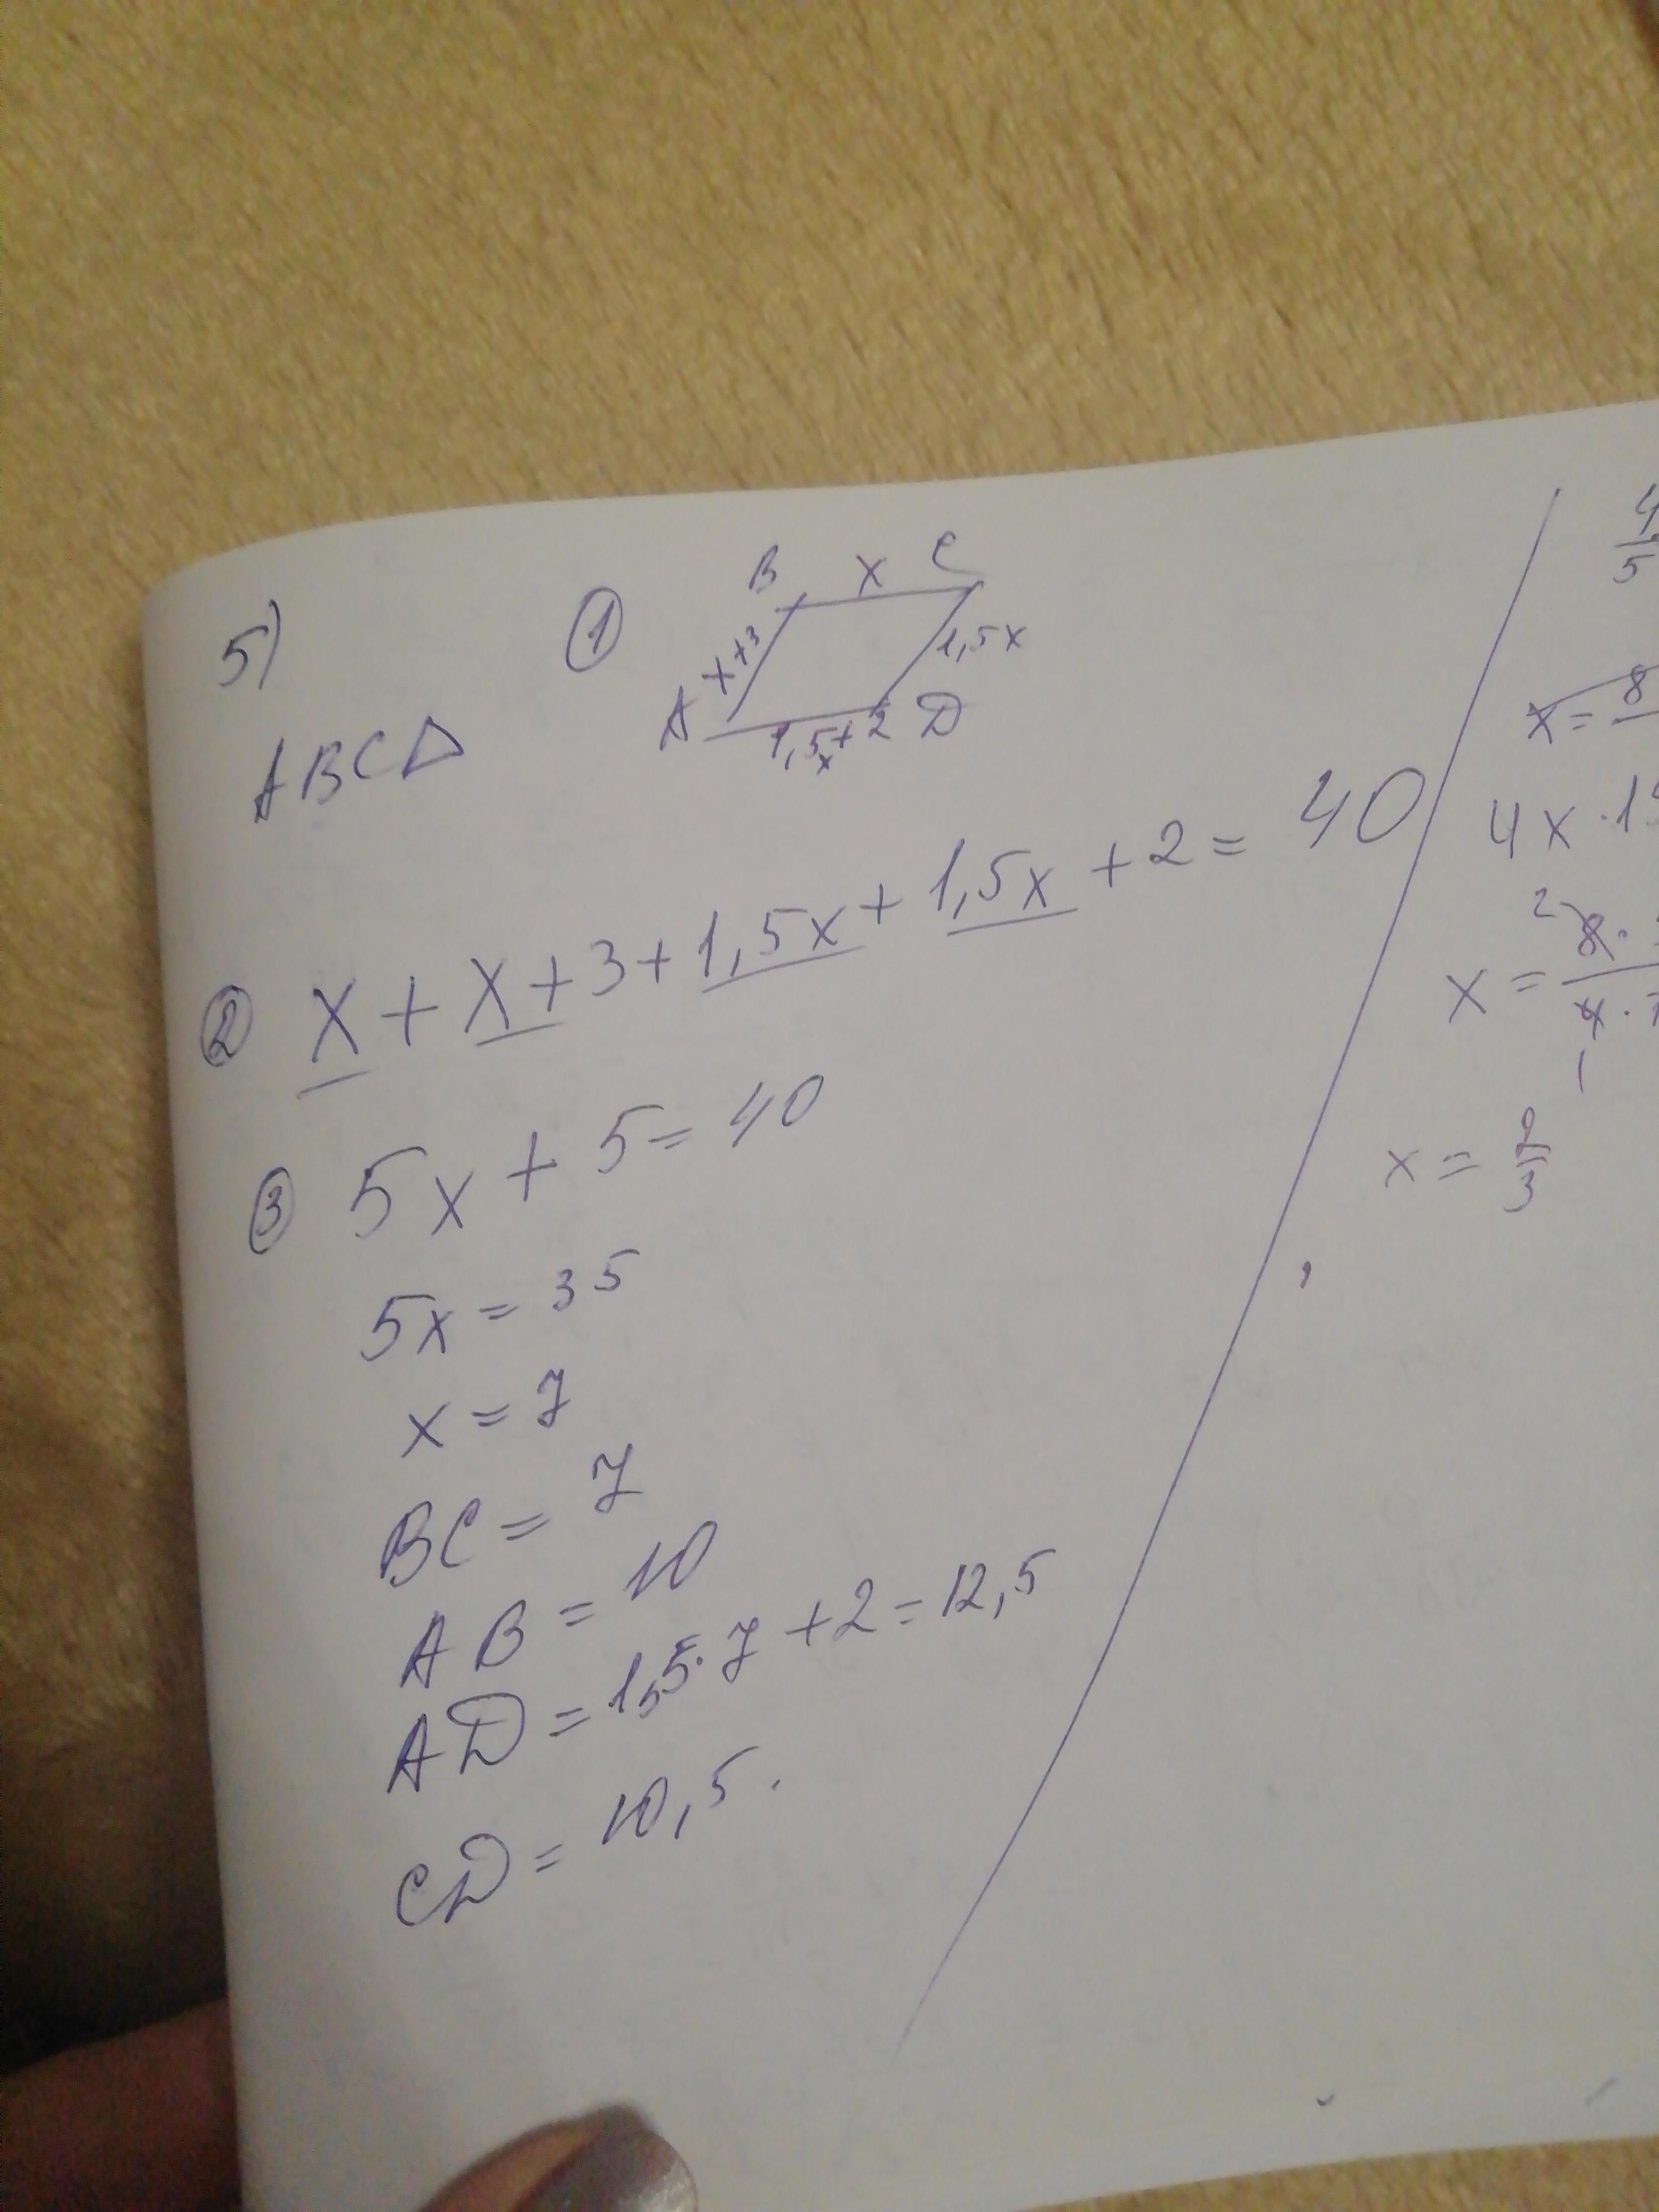 5) ① B x C
x+3 1,5x
A 1,5x+2 D
ABCD
② x + x + 3 + 1,5x + 1,5x + 2 = 40
③ 5x + 5 = 40
5x = 35
x = 7
BC = 7
AB = 10
AD = 1,5·7 + 2 = 12,5
CD = 10,5.
4
5
x = 8
4x · 1
x = 8 ·
4 ·
x = 2/3